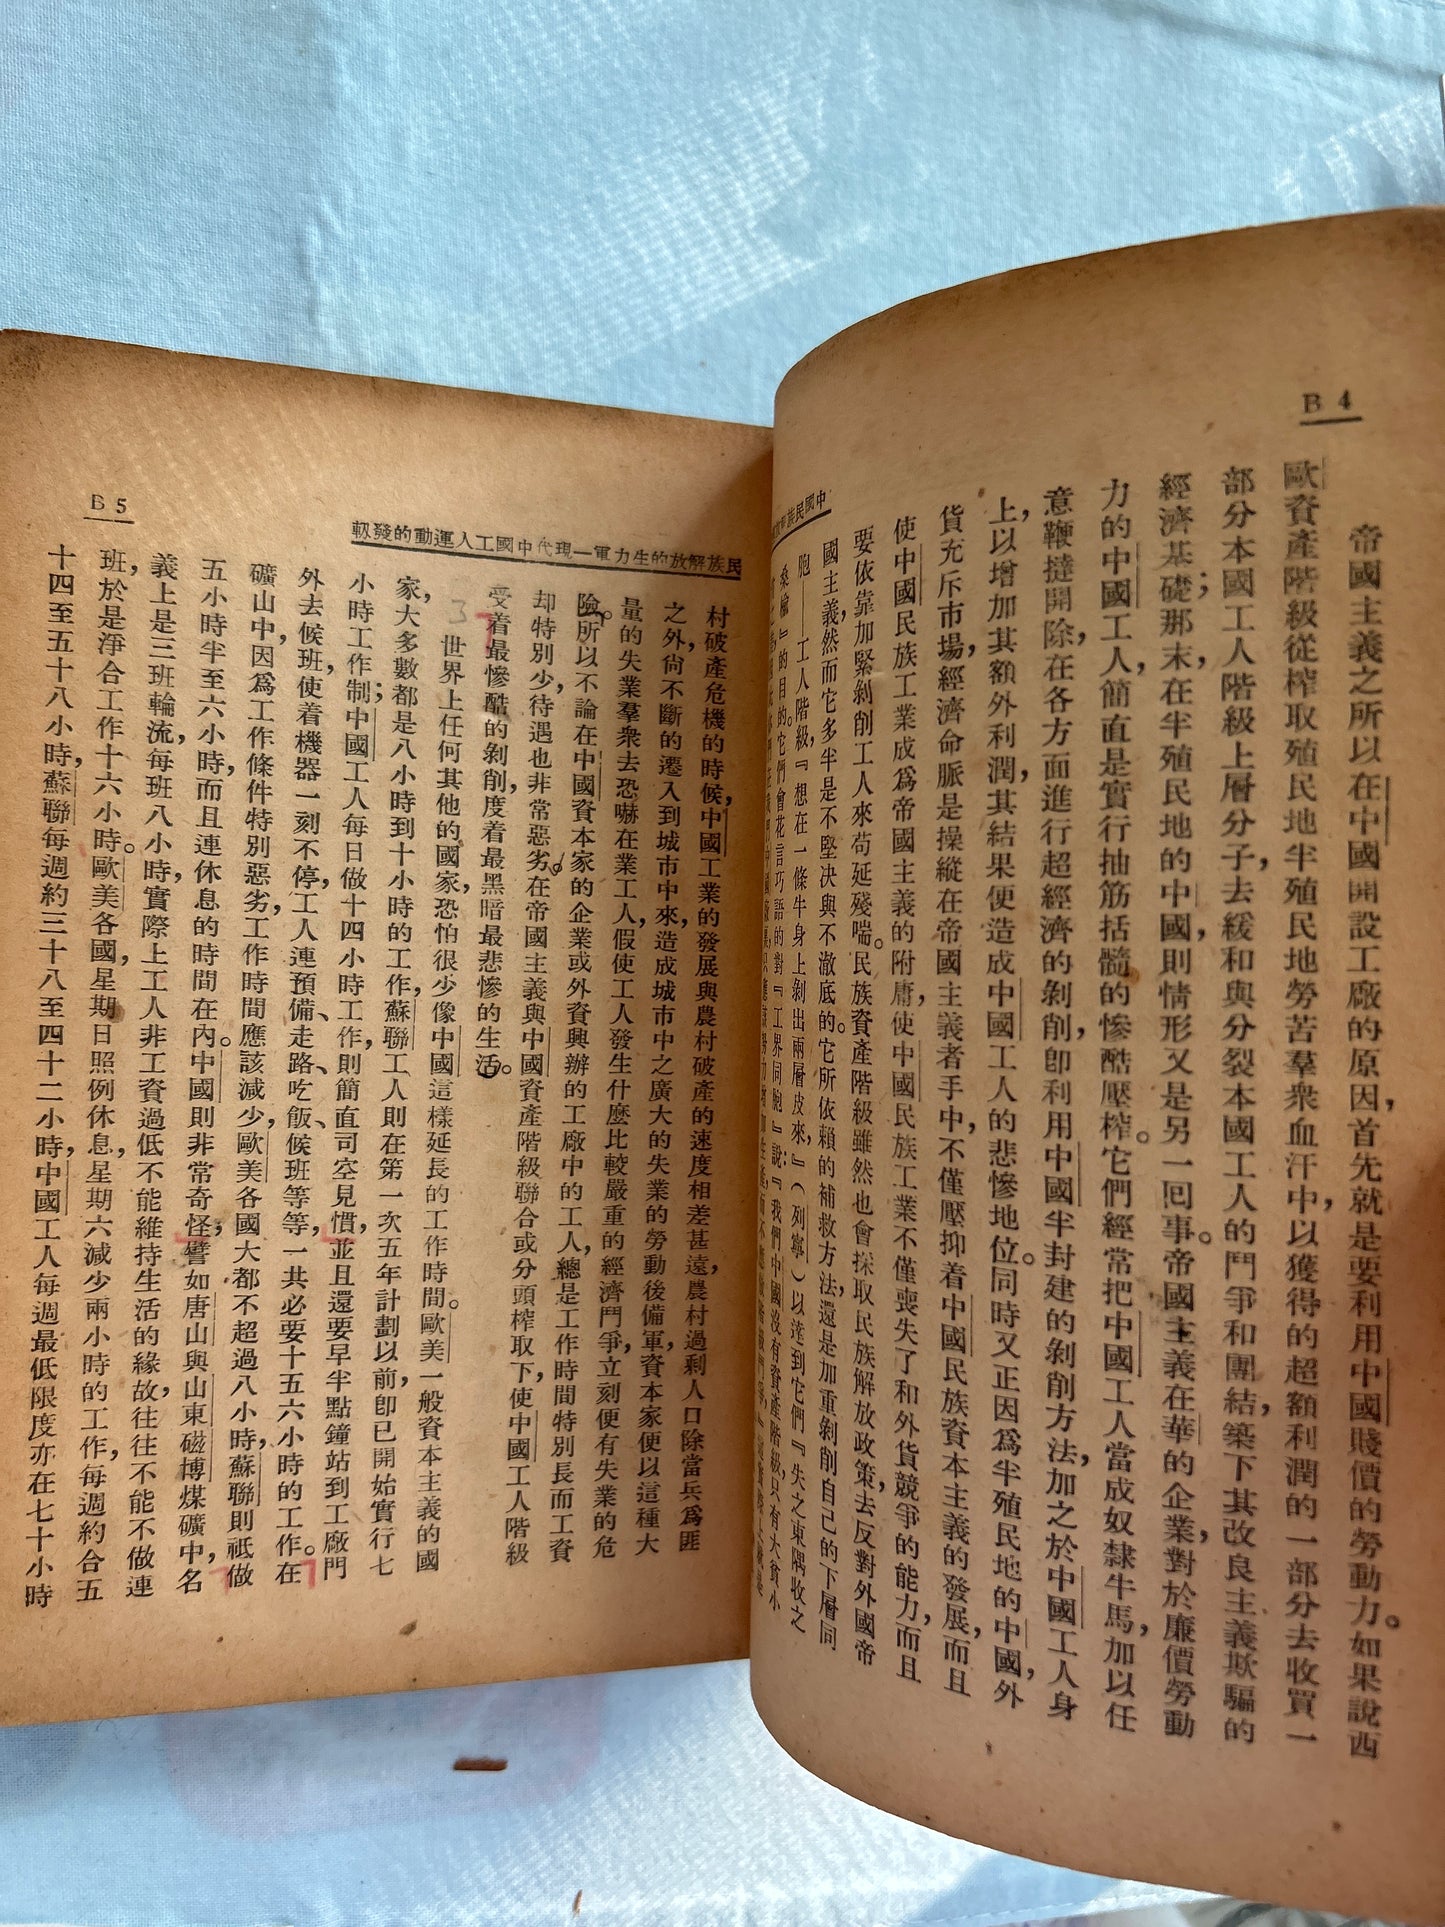 B 4
帝國主義之所以在中國開設工廠的原因，首先就是要利用中國賤價的勞動力。如果說西
歐資產階級從榨取殖民地半殖民地勞苦羣衆血汗中，以獲得的超額利潤的一部分去收買一
部分本國工人階級上層分子，去緩和與分裂本國工人的鬥爭和團結，築下其改良主義欺騙的
經濟基礎；那末，在半殖民地的中國，則情形又是另一囘事。帝國主義在華的企業，對於廉價勞動
力的中國工人，簡直是實行抽筋括髓的慘酷壓榨。它們經常把中國工人當成奴隸牛馬，加以任
意鞭撻開除，在各方面進行超經濟的剝削，卽利用中國半封建的剝削方法，加之於中國工人身
上，以增加其額外利潤，其結果便造成中國工人的悲慘地位。同時又正因爲半殖民地的中國，外
貨充斥市場，經濟命脈是操縱在帝國主義者手中，不僅壓抑着中國民族資本主義的發展，而且
使中國民族工業成爲帝國主義的附庸，使中國民族工業不僅喪失了和外貨競爭的能力，而且
要依靠加緊剝削工人來苟延殘喘。民族資產階級雖然也會採取民族解放政策，去反對外國帝
國主義，然而它多半是不堅決與不澈底的。它所依賴的補救方法，還是加重剝削自己的下層同
胞——工人階級，『想在一條牛身上剝出兩層皮來，』（列寧）以達到它們『失之東隅收之
桑楡』的目的。它們會花言巧語的對『工界同胞』說：『我們中國沒有資產階級，只有大貧小
中國民族
B 5
民族解放的生力軍—現代中國工人運動的發靱
村破產危機的時候，中國工業的發展與農村破產的速度相差甚遠，農村過剩人口除當兵爲匪
之外，尙不斷的遷入到城市中來，造成城市中之廣大的失業的勞動後備軍，資本家便以這種大
量的失業羣衆去恐嚇在業工人，假使工人發生什麼比較嚴重的經濟鬥爭，立刻便有失業的危
險。所以不論在中國資本家的企業或外資興辦的工廠中的工人，總是工作時間特別長而工資
却特別少，待遇也非常惡劣。在帝國主義與中國資產階級聯合或分頭榨取下，使中國工人階級
受着最慘酷的剝削，度着最黑暗最悲慘的生活。
3 世界上任何其他的國家，恐怕很少像中國這樣延長的工作時間。歐美一般資本主義的國
家，大多數都是八小時到十小時的工作，蘇聯工人則在第一次五年計劃以前，卽已開始實行七
小時工作制；中國工人每日做十四小時工作，則簡直司空見慣，並且還要早半點鐘站到工廠門
外去候班，使着機器一刻不停，工人連預備、走路、吃飯、候班等等，一共必要十五六小時的工作。在
礦山中，因爲工作條件特別惡劣，工作時間應該減少，歐美各國大都不超過八小時，蘇聯則祇做
五小時半至六小時，而且連休息的時間在內。中國則非常奇怪，譬如唐山與山東磁博煤礦中，名
義上是三班輪流，每班八小時，實際上工人非工資過低不能維持生活的緣故，往往不能不做連
班，於是淨合工作十六小時。歐美各國，星期日照例休息，星期六減少兩小時的工作，每週約合五
十四至五十八小時，蘇聯每週約三十八至四十二小時，中國工人每週最低限度亦在七十小時